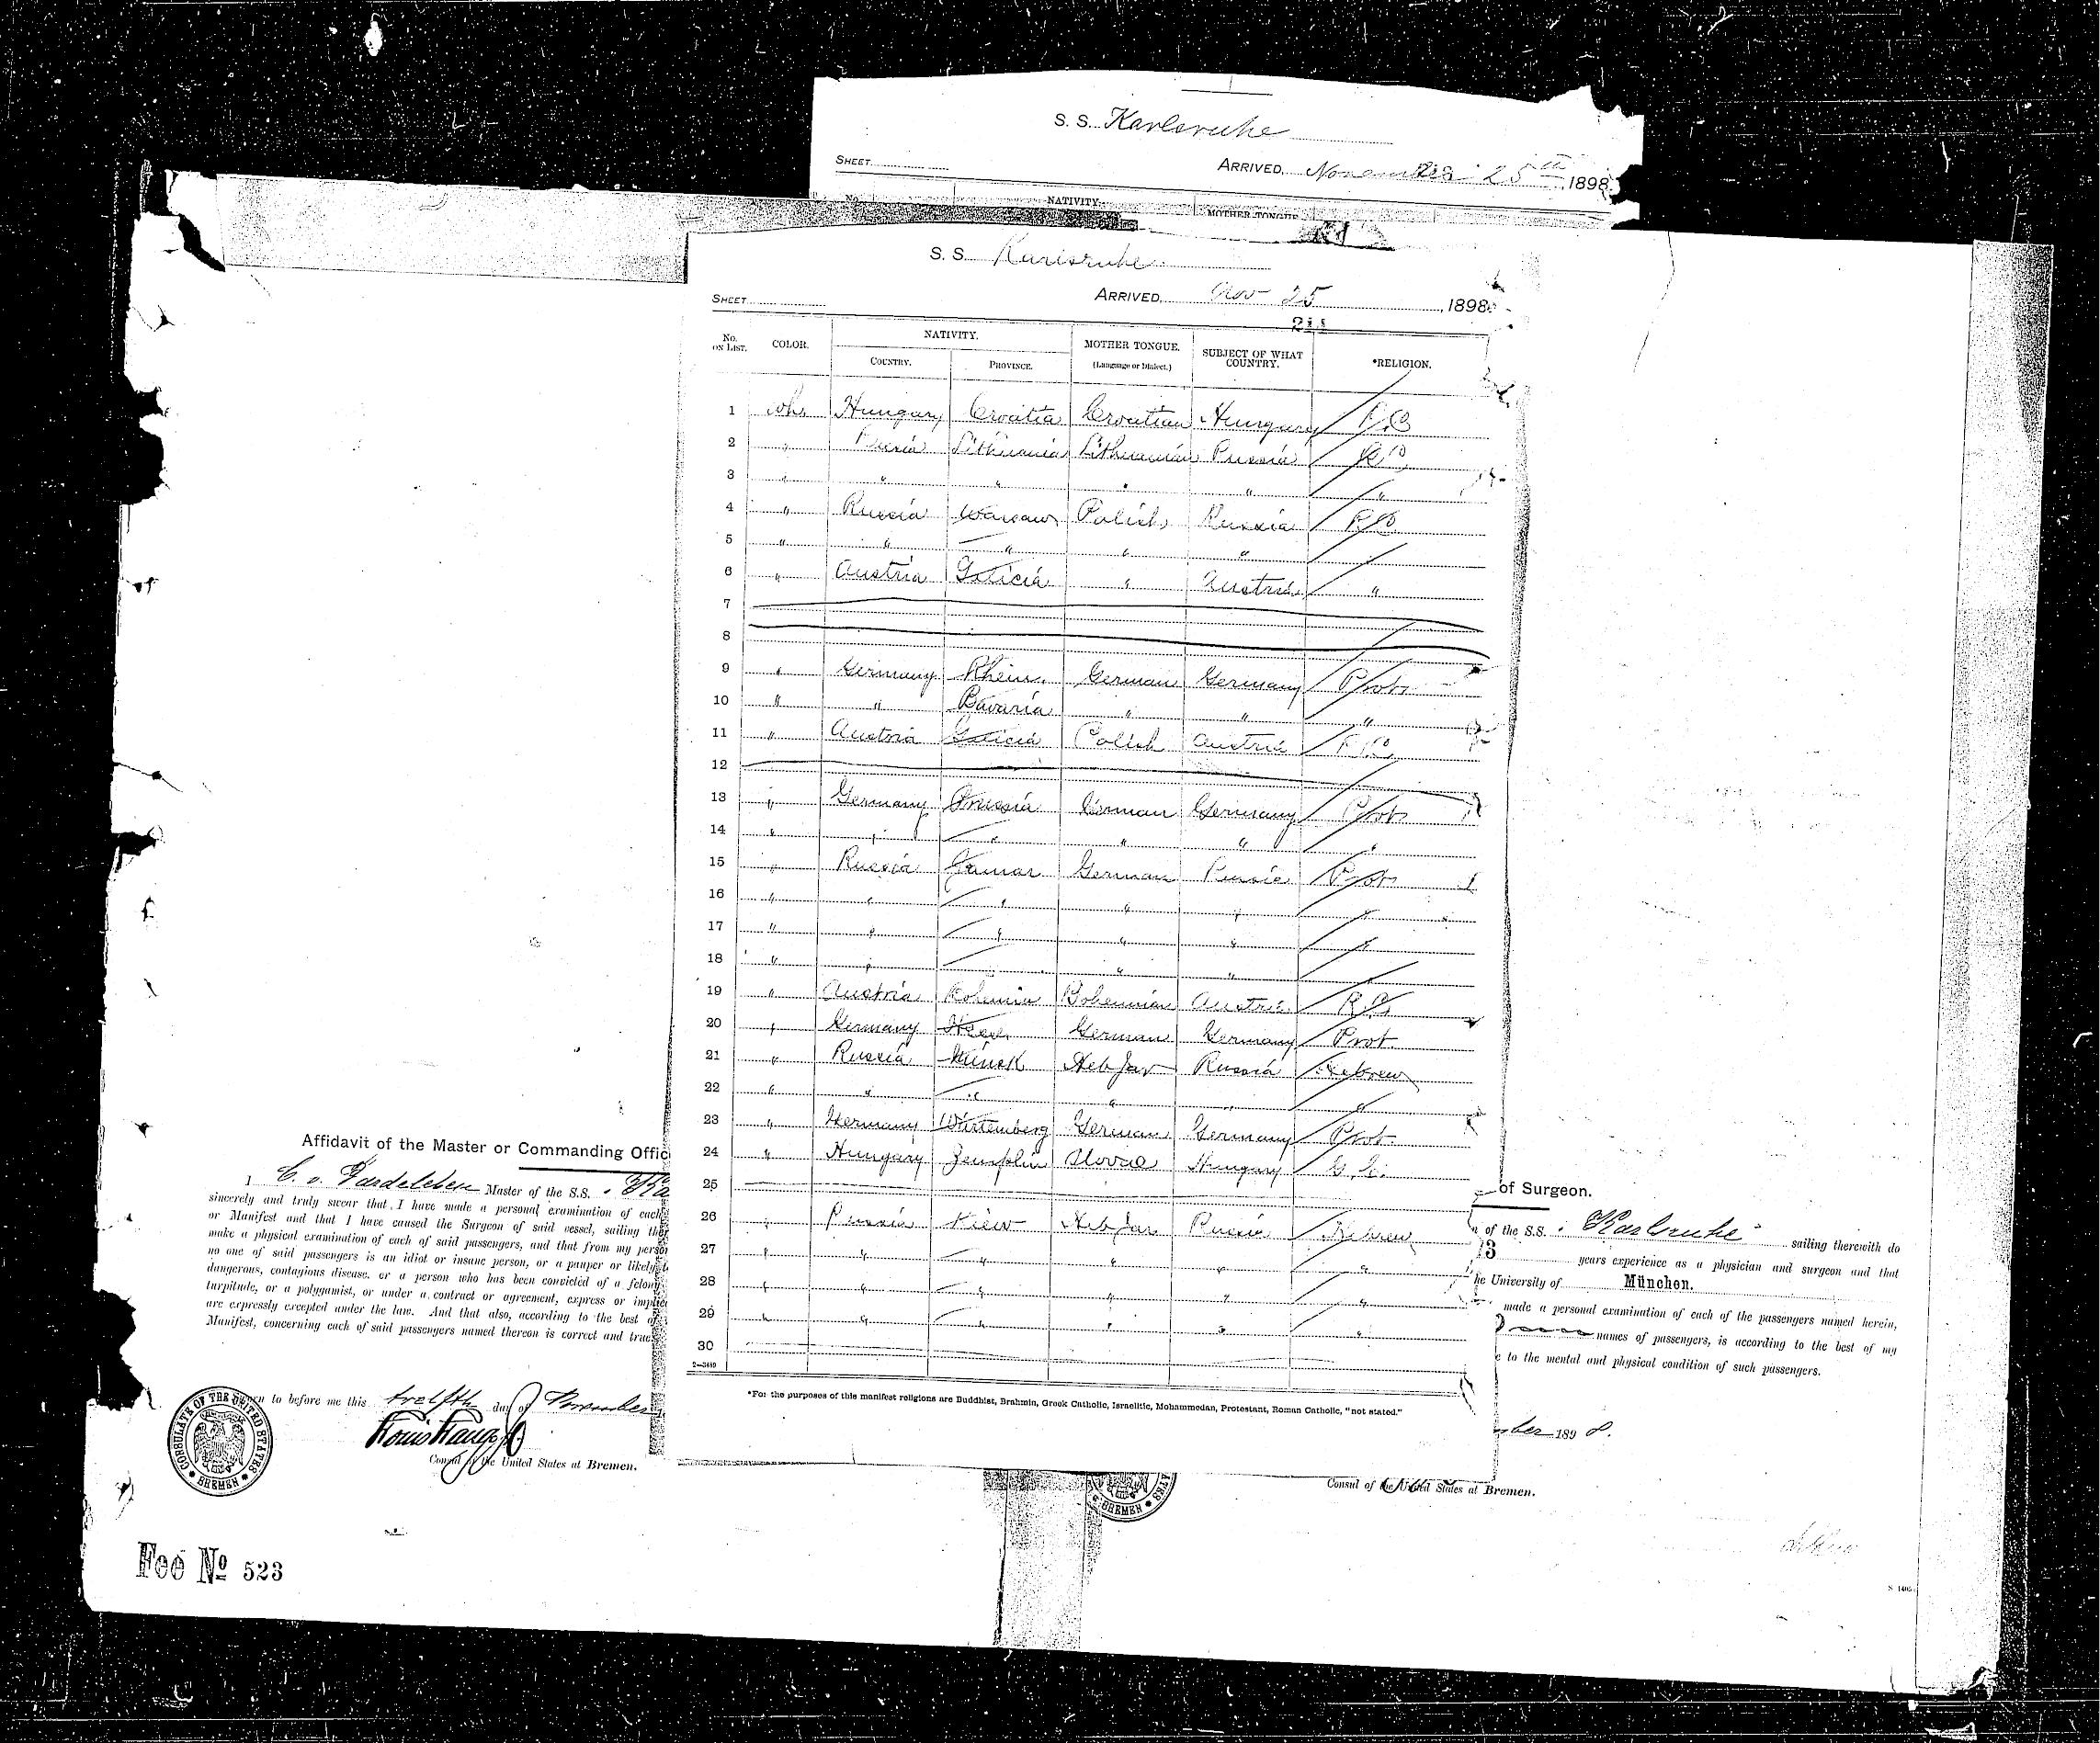 S. S. Karlsruhe
SHEET ARRIVED, November 25th, 1898.
No. NATIVITY. MOTHER TONGUE
S. S. Karlsruhe
SHEET ARRIVED, Nov 25, 1898.
No. ON LIST. COLOR. NATIVITY. COUNTRY. PROVINCE. MOTHER TONGUE. (Language or Dialect.) SUBJECT OF WHAT COUNTRY. *RELIGION.
1 wh. Hungary Croatia Croatian Hungary R.C
2 " Russia Lithuania Lithuanian Russia R.C
3 " " " " " "
4 " Russia Warsaw Polish Russia R.C
5 " " " " "
6 " Austria Galicia " Austria "
7
8
9 " Germany Rhein. German Germany Prot.
10 " " Bavaria " " "
11 " Austria Galicia Polish Austria R.C.
12
13 " Germany Prussia German Germany Prot
14 " " " " " "
15 " Russia German Russia Prot
16 " " " " " "
17 " " " " " "
18 " " " "
19 " Austria Bohemia Bohemian Austria R.C.
20 " Germany German Germany Prot
21 " Russia Minsk Heb Jar Russia Hebrew
22 " " " " " "
23 " Germany Würtemberg German Germany Prot
24 " Hungary Zemplin Slovac Hungary G. C.
25
26 " Russia Kiew Heb Jar Russia Hebrew
27 " " " " " "
28 " " " " " "
29 " " " " " "
30
2—3449
*For the purposes of this manifest religions are Buddhist, Brahmin, Greek Catholic, Israelitic, Mohammedan, Protestant, Roman Catholic, "not stated."
Affidavit of the Master or Commanding Offic
I C. v. Bardeleben Master of the S.S. "Ka
sincerely and truly swear that, I have made a personal examination of each
or Manifest and that I have caused the Surgeon of said vessel, sailing ther
make a physical examination of each of said passengers, and that from my perso
no one of said passengers is an idiot or insane person, or a pauper or likely t
dangerous, contagious disease, or a person who has been convicted of a felony
turpitude, or a polygamist, or under a contract or agreement, express or implie
are expressly excepted under the law. And that also, according to the best of
Manifest, concerning each of said passengers named thereon is correct and true
to before me this twelfth day of November
Consul of the United States at Bremen.
CONSULATE OF THE UNITED STATES BREMEN
Fee No 523
of Surgeon.
of the S.S. "Karlsruhe" sailing therewith do
13 years experience as a physician and surgeon and that
he University of München.
made a personal examination of each of the passengers named herein,
names of passengers, is according to the best of my
e to the mental and physical condition of such passengers.
ber 1898.
BREMEN
Consul of the United States at Bremen.